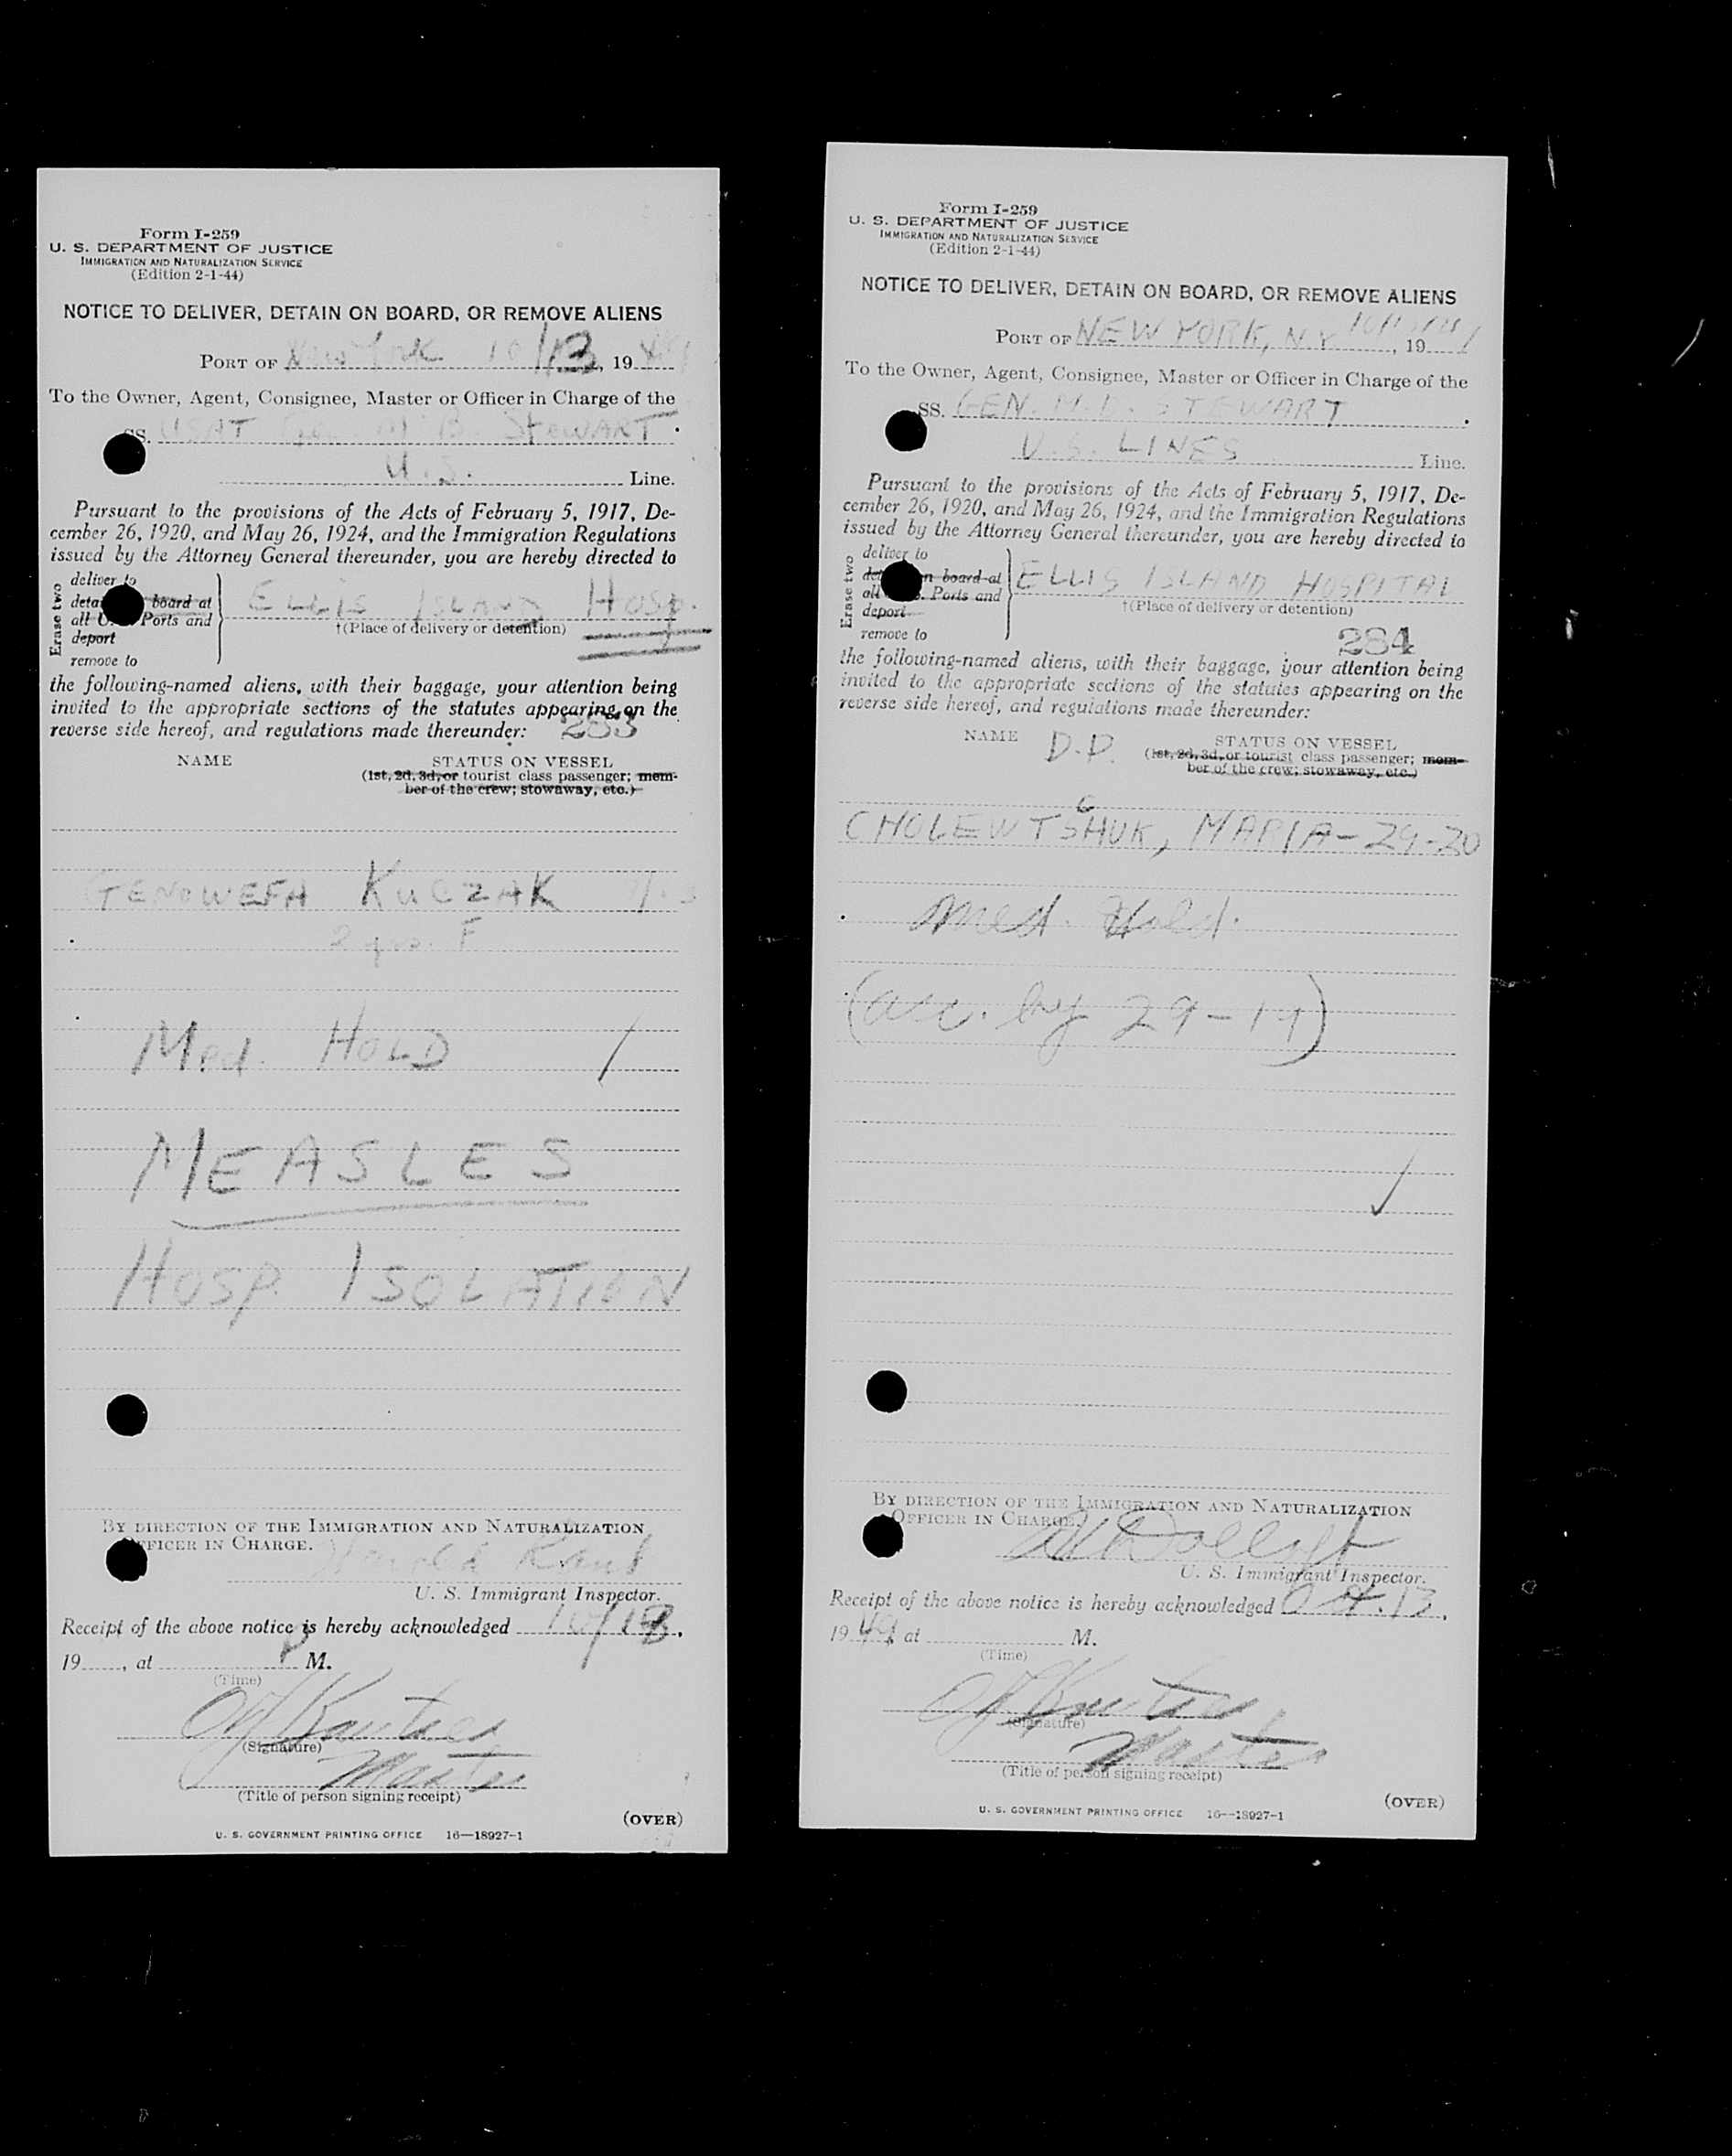 Form I-259
U. S. DEPARTMENT OF JUSTICE
IMMIGRATION AND NATURALIZATION SERVICE
(Edition 2-1-44)
NOTICE TO DELIVER, DETAIN ON BOARD, OR REMOVE ALIENS
PORT OF New York 10/13, 1949
To the Owner, Agent, Consignee, Master or Officer in Charge of the
SS. USAT Gen. M B. STEWART.
U.S. Line.
Pursuant to the provisions of the Acts of February 5, 1917, De-
cember 26, 1920, and May 26, 1924, and the Immigration Regulations
issued by the Attorney General thereunder, you are hereby directed to
Erase two
deliver to
deta board at
all U. Ports and
deport
remove to
ELLIS ISLAND HOSP.
†(Place of delivery or detention)
the following-named aliens, with their baggage, your attention being
invited to the appropriate sections of the statutes appearing on the
reverse side hereof, and regulations made thereunder: 283
NAME STATUS ON VESSEL
(1st, 2d, 3d, or tourist class passenger; mem-
ber of the crew; stowaway, etc.)
GENOWEFA KUCZAK
2 yrs. F
Med. HOLD /
MEASLES
HOSP. ISOLATION
BY DIRECTION OF THE IMMIGRATION AND NATURALIZATION
OFFICER IN CHARGE.
Harold
U. S. Immigrant Inspector.
Receipt of the above notice is hereby acknowledged 10/13,
19, at P M.
(Time)
(Signature)
Master
(Title of person signing receipt)
(OVER)
U. S. GOVERNMENT PRINTING OFFICE 16—18927-1
Form I-259
U. S. DEPARTMENT OF JUSTICE
IMMIGRATION AND NATURALIZATION SERVICE
(Edition 2-1-44)
NOTICE TO DELIVER, DETAIN ON BOARD, OR REMOVE ALIENS
PORT OF NEW YORK, N.Y, 19
To the Owner, Agent, Consignee, Master or Officer in Charge of the
SS. GEN. M.B. STEWART.
U.S. LINES Line.
Pursuant to the provisions of the Acts of February 5, 1917, De-
cember 26, 1920, and May 26, 1924, and the Immigration Regulations
issued by the Attorney General thereunder, you are hereby directed to
Erase two
deliver to
det n board at
all . Ports and
deport
remove to
ELLIS ISLAND HOSPITAL
†(Place of delivery or detention)
284
the following-named aliens, with their baggage, your attention being
invited to the appropriate sections of the statutes appearing on the
reverse side hereof, and regulations made thereunder:
NAME D.P. STATUS ON VESSEL
(1st, 2d, 3d, or tourist class passenger; mem-
ber of the crew; stowaway, etc.)
CHOLEWTSHUK, MARIA - 29-20
Med. Hold.
(acc. by 29-19)
BY DIRECTION OF THE IMMIGRATION AND NATURALIZATION
OFFICER IN CHARGE.
U. S. Immigrant Inspector.
Receipt of the above notice is hereby acknowledged Oct. 13,
1949, at M.
(Time)
(Signature)
Master
(Title of person signing receipt)
(OVER)
U. S. GOVERNMENT PRINTING OFFICE 16—18927-1